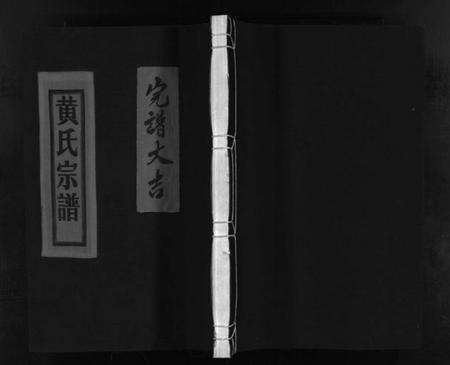 完譜大吉
黄氏宗譜